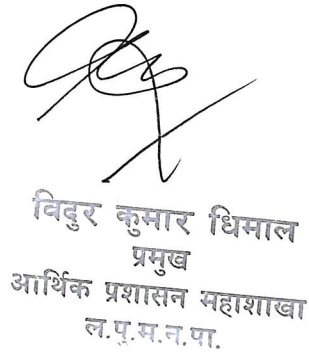 विदुर कुमार धिमाल
प्रमुख
आर्थिक प्रशासन महाशाखा
ल.पु.म.न.पा.